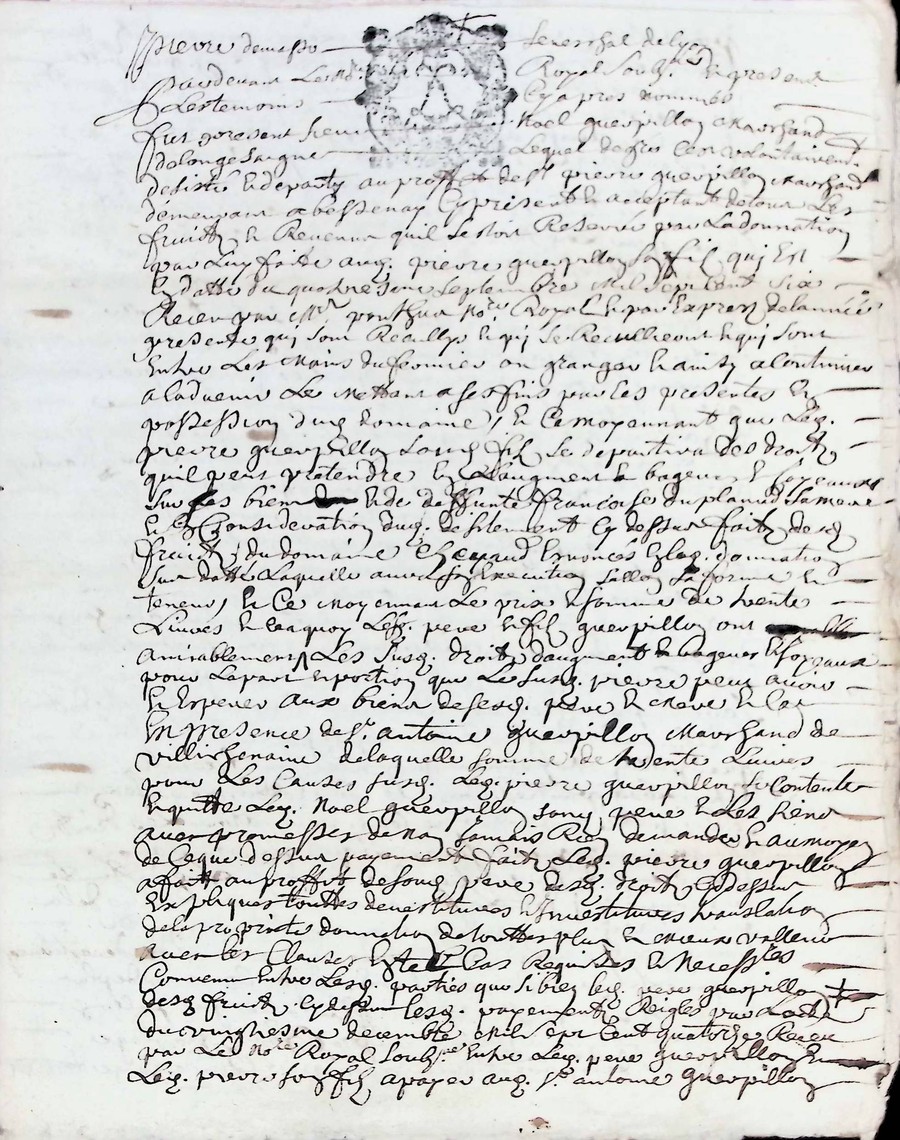 par devant Le No.re Royal soub.né et present
Et les temoins Cy apres nommés
fut present sieur Noel guerpillon Marchand
de longesaigne Lequel de gré Cest volontairem.t
desisté et departy au proffit de s.r pierre guerpillon Marchand
demeurant a bessenay Cy present et acceptant de tous Les
fruitz et Revenus quil sestoit Reservés par La donnation
par Luy faite aud. pierre guerpillon son filz qui Est
En datte du septembre Mil sept cent six
Receu par M.e ponthus No.re Royal et par Exprez de lannée
presente qui sont Receullys et qui se Receulliront et qui sont
Entre Les Mains du fermier ou granger et ainsy a Continuer
a ladvenir Le Mettant a ses fins par les presentes En
possession dud. domaine, et Ce moyennant que Led.
pierre guerpillon sond. filz se departira des droitz
quil peut pretendre En Laugment et bagues et joyeaux
sur Les biens de deffunte francoise duplanud sa mere
Et En Consideration dud. desistement Cy dessus fait desd.
fruitz du domaine Enoncés En lad. donnation
sus dattée Laquelle aura son Execution sellon sa forme et
teneur, et Ce Moyennant Le prix et somme de trente
Livres Lesd. pere et filz guerpillon ont
amiablement Les susd. droitz daugment et bagues et joyeaux
pour La part et portion que Le susd. pierre peut avoir
et Esperer aux biens de sesd. pere et mere et Ce
En presence de s.r antoine guerpillon Marchand de
villechenaive de laquelle somme de trente Livres
pour Les Causes susd. Led. pierre guerpillon se Contente
Et quitte Led. Noel guerpillon sond. pere et Les siens
avec promesses de ne jamais Rien demander et au moyen
de Ce que dessus payement fait Led. pierre guerpillon
a fait au proffit de sond. pere desd. droitz Cy dessus
Expliqués touttes devestitures et Investitures translation
de la proprieté donnation de touttes plus et mieux valleur
avec les Clauses En tel Cas Requises et Necessres
Convenu Entre Lesd. parties que si bien led. pere guerpillon
desd. fruitz Cy dessus lesd. payements Reiglés par Lacte
du vingtiesme decembre Mil sept Cent quatorze Receu
par Le No.re Royal soub.né Entre Led. pere guerpillon Et
Led. pierre son filz a payer aud. s.r antoine guerpillon